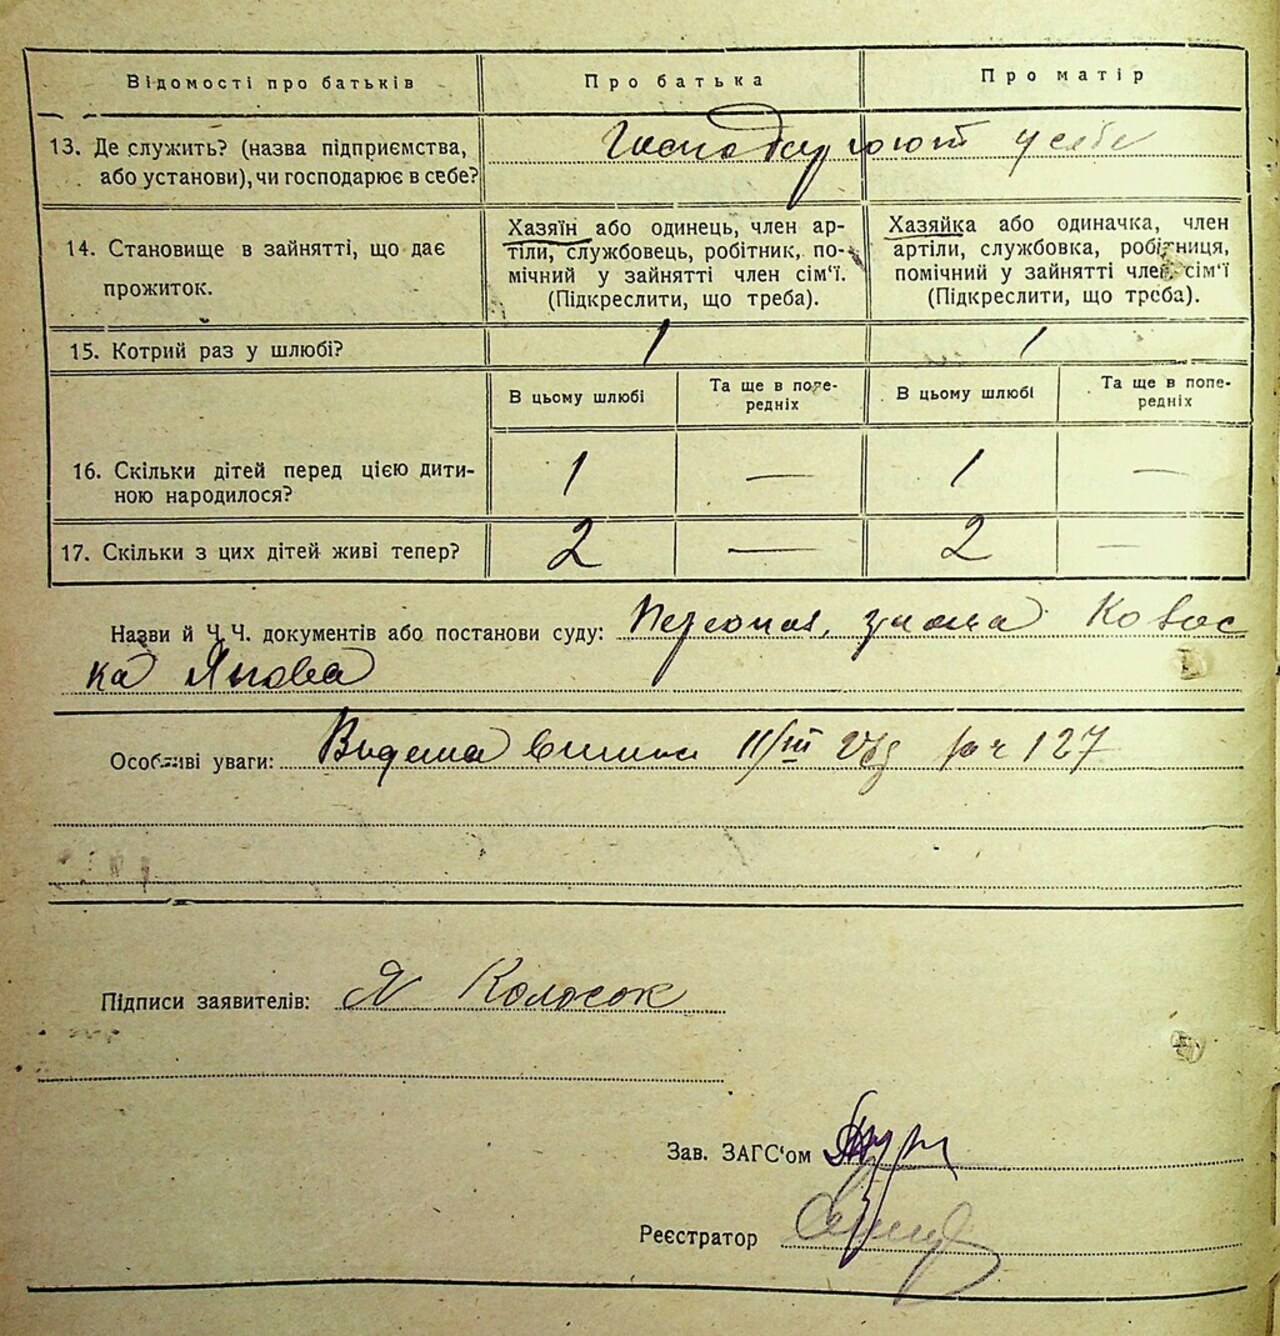 Відомості про батьків
Про батька
Про матір
13. Де служить? (назва підприємства,
або установи), чи господарює в себе?
Господарюют у себе
14. Становище в зайнятті, що дає
прожиток.
Хазяїн або одинець, член ар-
тіли, службовець, робітник, по-
мічний у зайнятті член сім'ї.
(Підкреслити, що треба).
Хазяйка або одиначка, член
артіли, службовка, робітниця,
помічний у зайнятті член сім'ї
(Підкреслити, що треба).
15. Котрий раз у шлюбі?
1
1
В цьому шлюбі
Та ще в попе-
редніх
В цьому шлюбі
Та ще в попе-
редніх
16. Скільки дітей перед цією дити-
ною народилося?
1
—
1
—
17. Скільки з цих дітей живі тепер?
2
—
2
—
Назви й Ч.Ч. документів або постанови суду:
Особливі уваги: 127
Підписи заявителів: Я Колосок
Зав. ЗАГС'ом
Реєстратор